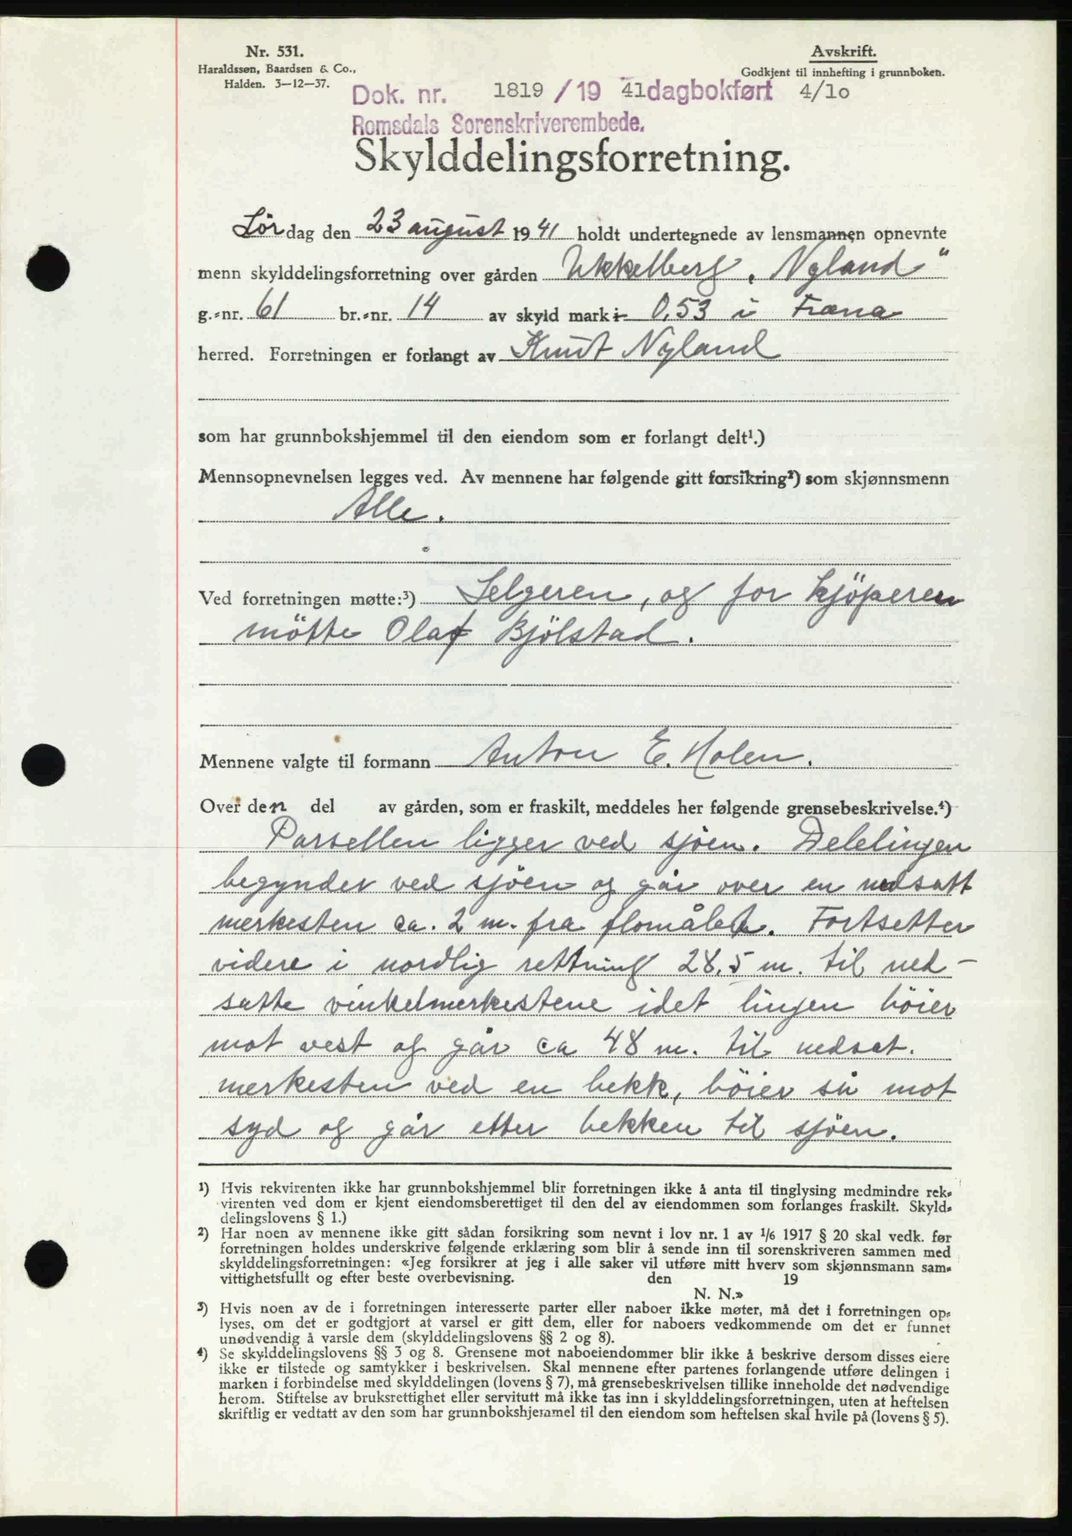 Nr. 531.
Haraldssøn, Baardsen & Co.,
Halden. 3—12—37.
Avskrift.
Godkjent til innhefting i grunnboken.
Dok. nr. 1819 / 19 41 dagbokført 4/10
Romsdals Sorenskriverembede.
Skylddelingsforretning.
Lørdag den 23 august 1941 holdt undertegnede av lensmannen opnevnte
menn skylddelingsforretning over gården Ukkelberg, "Nyland"
g.-nr. 61 br.-nr. 14 av skyld mark 0,53 i Fræna
herred. Forretningen er forlangt av Knut Nyland
som har grunnbokshjemmel til den eiendom som er forlangt delt¹.)
Mennsopnevnelsen legges ved. Av mennene har følgende gitt forsikring²) som skjønnsmenn
Alle.
Ved forretningen møtte:³) Selgeren, og for kjöperen
mötte Olaf Bjölstad.
Mennene valgte til formann Anton E. Holen.
Over den del av gården, som er fraskilt, meddeles her følgende grensebeskrivelse.⁴)
Parsellen ligger ved sjöen. Delelinjen
begynder ved sjöen og går over en nedsatt
merkesten ca. 2 m. fra flomålet. Fortsetter
videre i nordlig rettning 28,5 m. til ned-
satte vinkelmerkestene idet linjen böier
mot vest og går ca 48 m. til nedsat.
merkesten ved en bekk, böier så mot
syd og går etter bekken til sjöen.
¹) Hvis rekvirenten ikke har grunnbokshjemmel blir forretningen ikke å anta til tinglysing medmindre rek-
virenten ved dom er kjent eiendomsberettiget til den del av eiendommen som forlanges fraskilt. Skyld-
delingslovens § 1.)
²) Har noen av mennene ikke gitt sådan forsikring som nevnt i lov nr. 1 av 1/6 1917 § 20 skal vedk. før
forretningen holdes underskrive følgende erklæring som blir å sende inn til sorenskriveren sammen med
skylddelingsforretningen: «Jeg forsikrer at jeg i alle saker vil utføre mitt hverv som skjønnsmann sam-
vittighetsfullt og efter beste overbevisning. den 19
N. N.»
³) Hvis noen av de i forretningen interesserte parter eller naboer ikke møter, må det i forretningen op-
lyses, om det er godtgjort at varsel er gitt dem, eller for naboers vedkommende om det er funnet
unødvendig å varsle dem (skylddelingslovens §§ 2 og 8).
⁴) Se skylddelingslovens §§ 3 og 8. Grensene mot naboeiendommer blir ikke å beskrive dersom disses eiere
ikke er tilstede og samtykker i beskrivelsen. Skal mennene efter partenes forlangende utføre delingen i
marken i forbindelse med skylddelingen (lovens § 7), må grensebeskrivelsen tillike inneholde det nødvendige
herom. Stiftelse av bruksrettighet eller servitutt må ikke tas inn i skylddelingsforretningen, uten at heftelsen
skriftlig er vedtatt av den som har grunnbokshjemmel til den eiendom som heftelsen skal hvile på (lovens § 5).